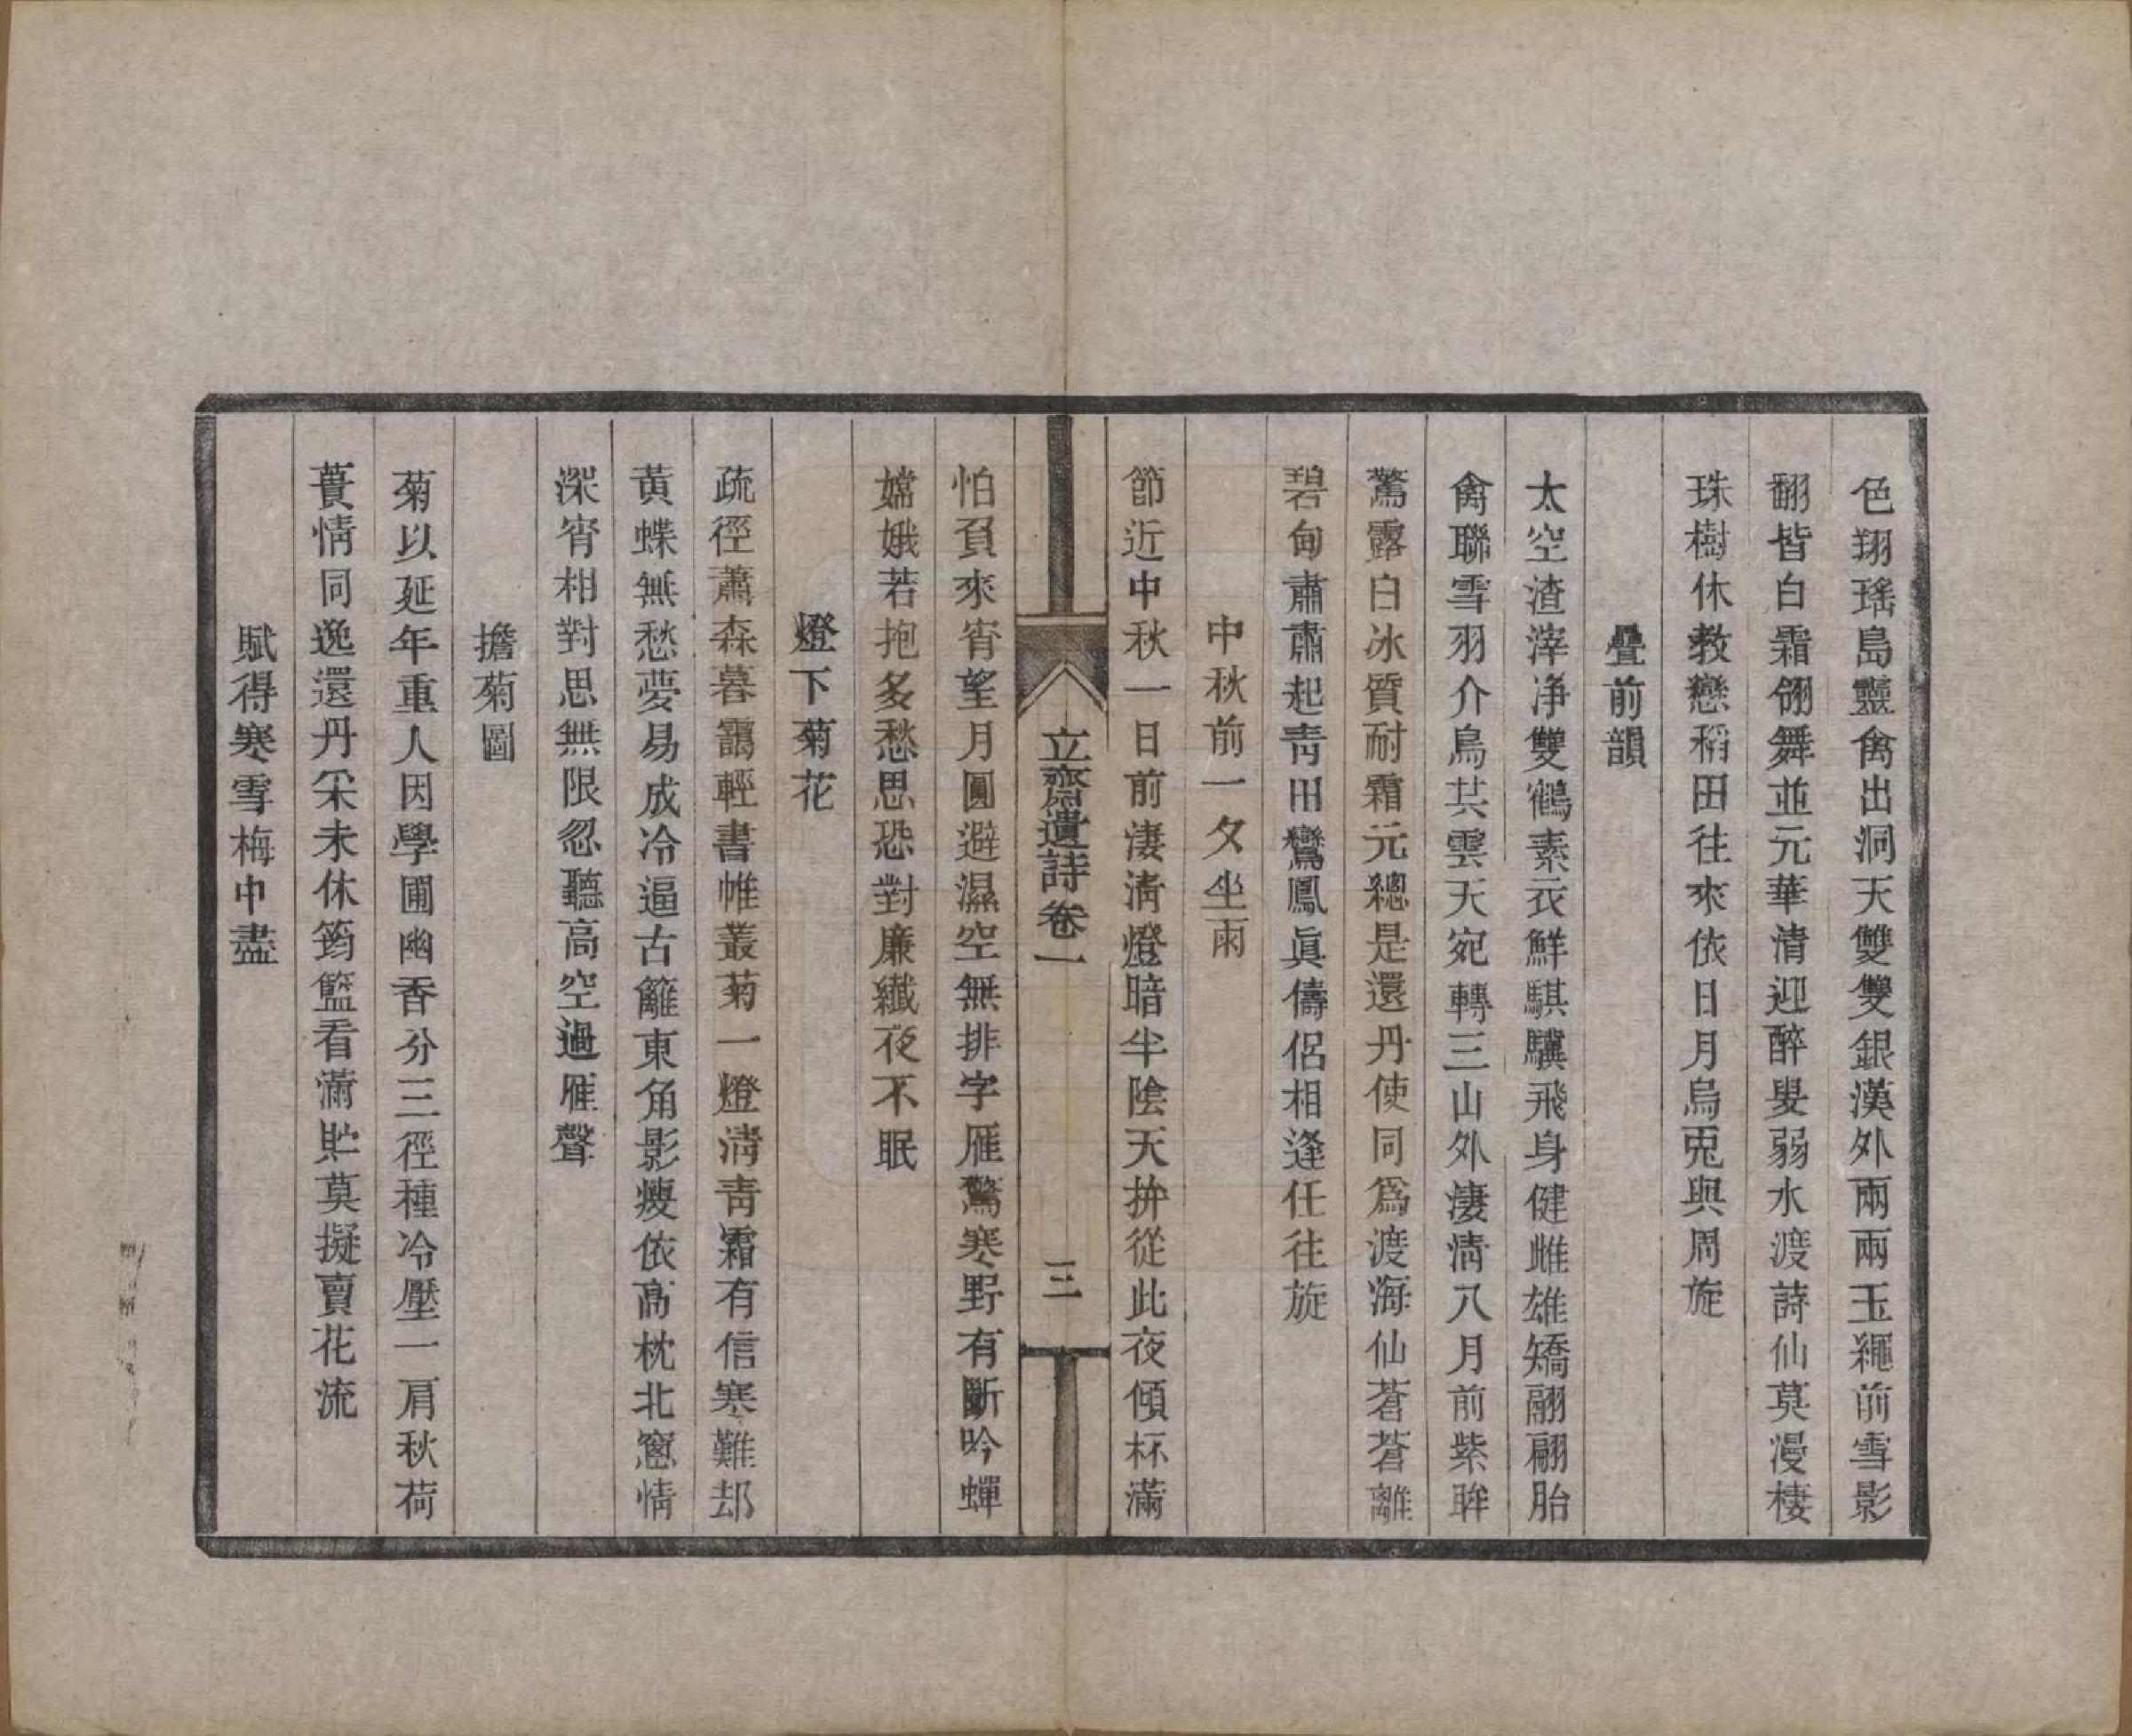 色翔瑤島靈禽出洞天雙雙銀漢外兩兩玉繩前雪影
翻皆白霜翎舞並元華清迎醉叟弱水渡詩仙莫漫棲
珠樹休教戀稻田往來依日月烏兎與周旋
疊前韻
太空渣滓凈雙鶴素衣鮮騏驥飛身健雌雄矯翮翩胎
禽聯雪羽介鳥共雲天宛轉三山外淒淸八月前紫眸
驚露白冰質耐霜元總是還丹使同爲渡海仙蒼蒼離
碧甸肅肅起靑田鸞鳳眞儔侶相逢任往旋
中秋前一夕坐雨
節近中秋一日前淒淸燈暗半陰天拚從此夜傾杯滿
怕負來宵望月圓避濕空無排字雁驚寒野有斷吟蟬
嫦娥若抱多愁思恐對廉纖夜不眠
燈下菊花
疏徑蕭森暮靄輕書帷叢菊一燈淸靑霜有信寒難却
黃蝶無愁夢易成冷逼古籬東角影瘦依高枕北窻情
深宵相對思無限忍聽高空過雁聲
擔菊圖
菊以延年重人因學圃幽香分三徑種冷壓一肩秋荷
蕢情同逸還丹采未休筠籃看滿貯莫擬賣花流
賦得寒雪梅中盡
立齋遺詩卷一
三